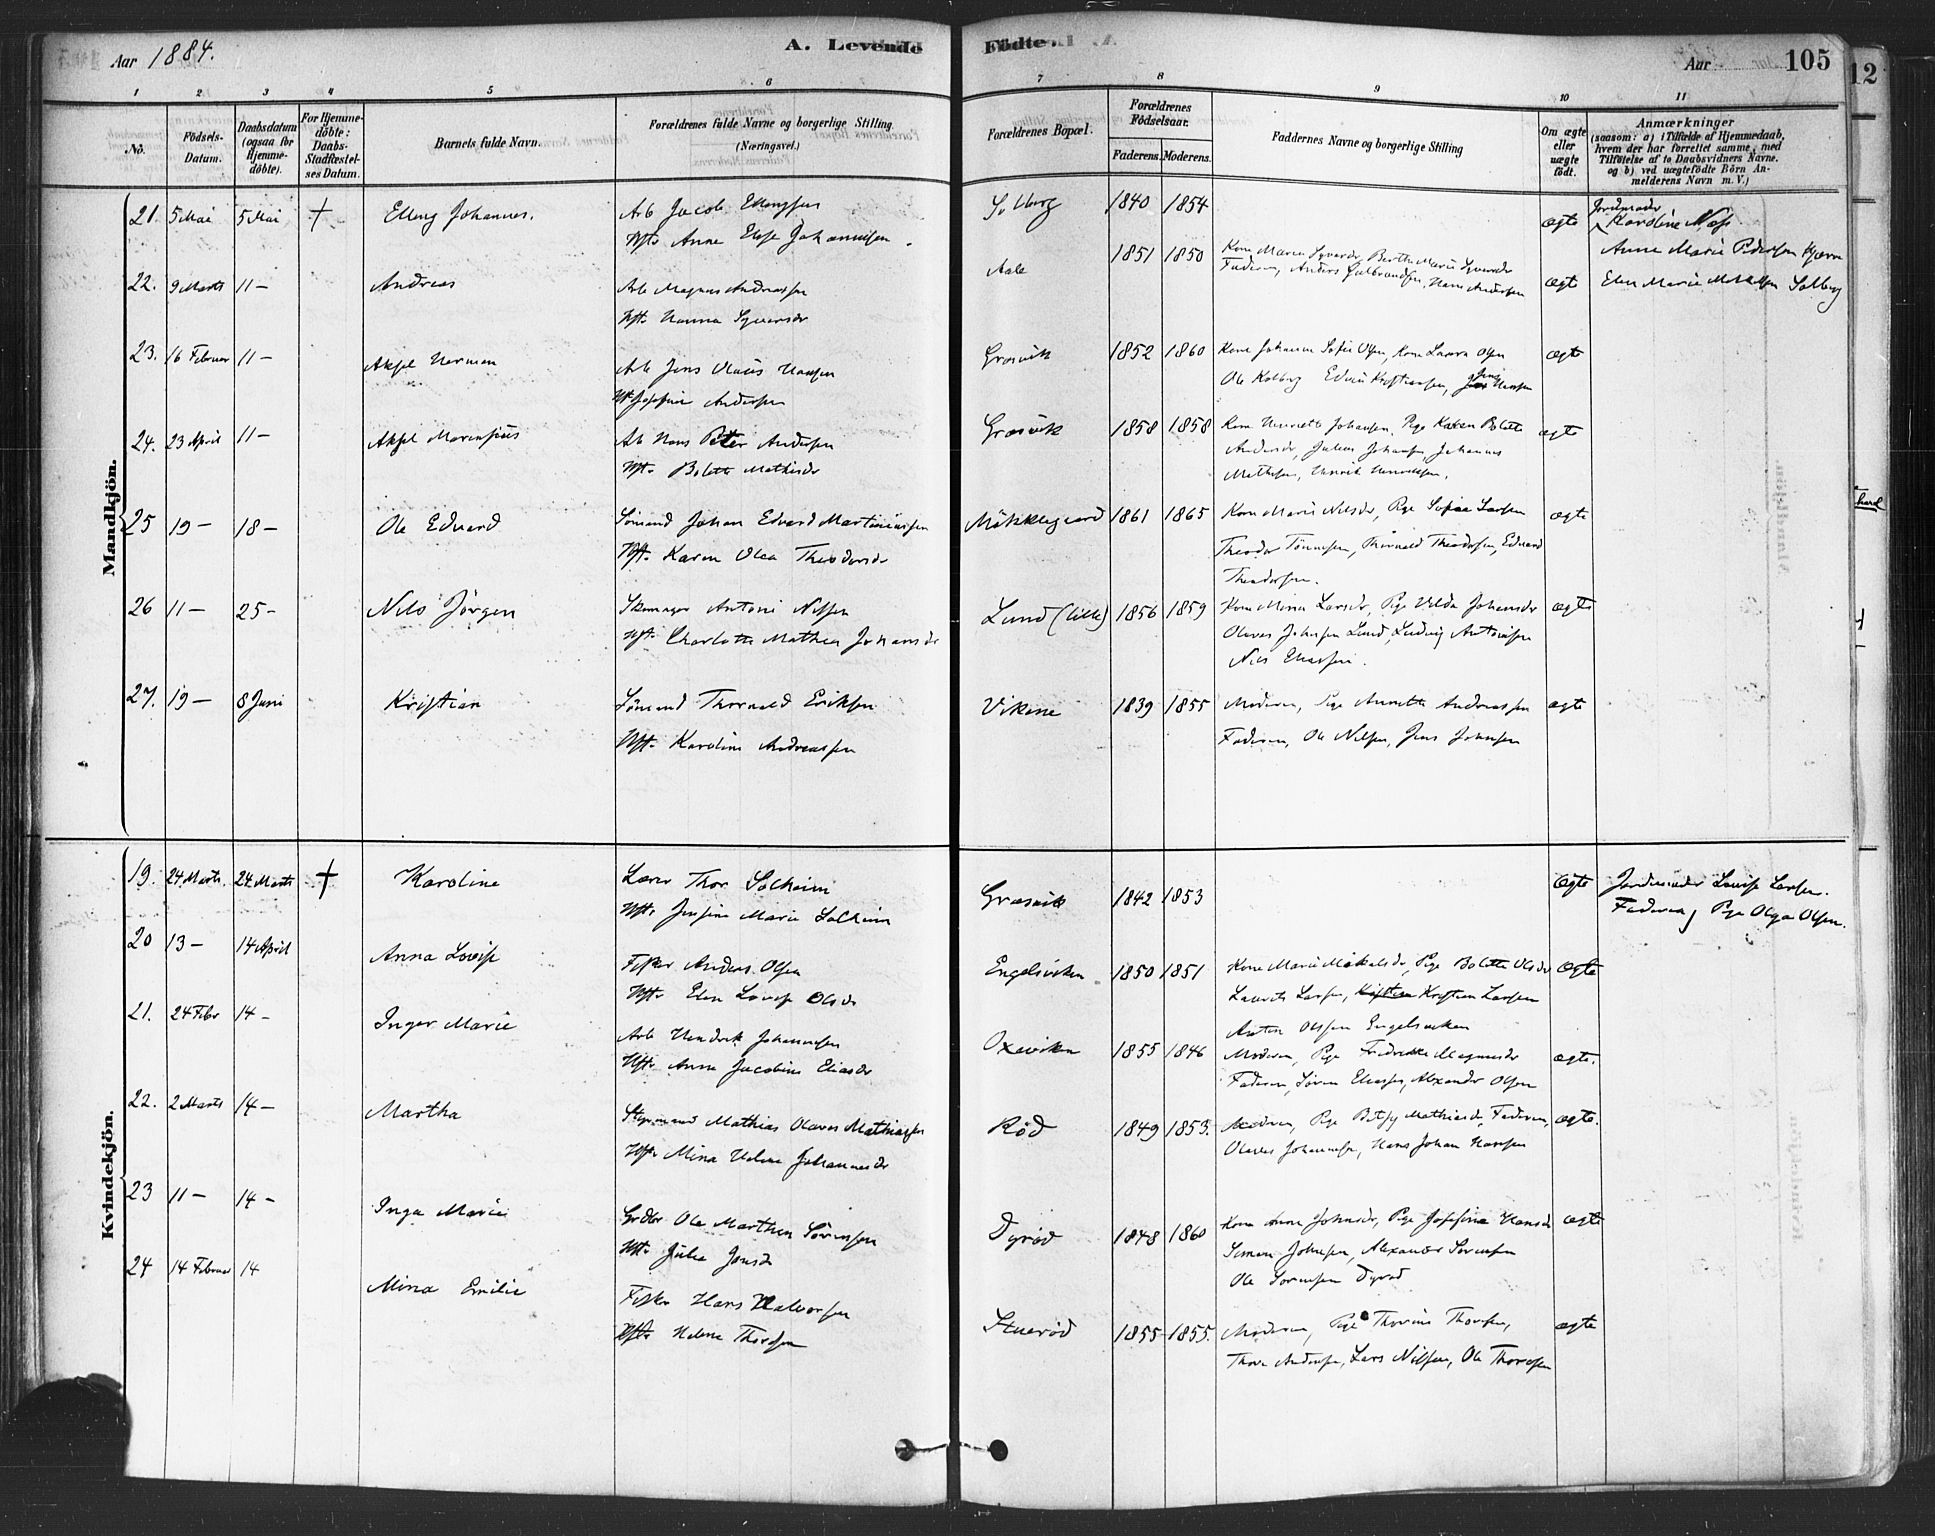 Aar 1884. A. Levende Fødte. Aar 105
1 2 3 4 5 6 7 8 9 10 11
No. Fødsels-Datum. Daabsdatum (ogsaa for Hjemmedøbte). For Hjemmedøbte: Daabs-Stadfæstelses Datum. Barnets fulde Navn. Forældrenes fulde Navne og borgerlige Stilling. (Næringsvei.) Forældrenes Bopæl. Forældrenes Fødselsaar. Faderens. Moderens. Faddernes Navne og borgerlige Stilling Om ægte eller uægte født. Anmærkninger (saasom: a) i Tilfælde af Hjemmedaab, hvem der har forrettet samme, med Tilføielse af to Daabsvidners Navne. og b) ved uægtefødte Børn Anmelderens Navn m. V.)
Mandkjön.
21. 5 Mai 5 Mai † Elleng Johannes. Arb Jacob Ellengsen Solberg 1840 1854 ægte Jordmoder Karoline Næss
Hst. Anne Else Johannesen. Anne Marie Pedersen Hjærn
Elen Marie Solberg
22. 9 Marts 11 – Andreas Arb Magnus Andreassen Aale 1851 1850 Kone Maren Syversdr, Berthe Marie Syversdr ægte
Hst. Hanna Syversdr Faderen, Anders Gulbrandsen, Hans Andersen
23. 16 Februar 11 – Aksel Herman Arb Jens Olaus Hansen Græsvik 1852 1860 Kone Johanne Sofie Olsen, Kone Laura Olsen ægte
Hst. Josefine Andersen Ole Kolberg Edvin Kristiansen, Jens Hansen
24. 23 April 11 – Aksel Marensius Arb Hans Peter Andersen Græsvik 1858 1858 Kone Henriette Johansen, Pige Karen Bolette ægte
Hst. Bolette Mathisdr Andersdr, Julius Johansen, Johannes
Mathisen, Henrik Henriksen.
25 19 – 18 – Ole Edvard Sømand Johan Edvard Martiniussen Mökklegaard 1861 1865 Kone Marie Nilsdr, Pige Sofie Larsen ægte
Hst. Karen Olea Theodorsdr Theodor Tönnesen, Thorvald Theodorsen, Edvard
Theodorsen.
26 11 – 25 – Nils Jörgen Skomager Antoni Nilsen Lund (lille) 1856 1859 Kone Mina Larsdr, Pige Hilda Johansdr ægte
Hst. Charlotte Mathea Johansdr Olaves Johnsen Lund, Ludvig Antonisen
Nils Eliassen.
27. 19 – 8 Juni Kristian Sömand Thorvald Eriksen Vikene 1839 1855 Moderen, Pige Annette Andreassen ægte
Hst. Karoline Andreassen Faderen, Ole Nilsen, Jens Johnsen
Kvindekjön.
19. 24 Marts. 24 Marts † Karoline Lærer Thor Solheim Græsvik 1842 1853 ægte Jordmoder Lovise Larsen.
Hst. Josefine Marie Solheim Faderen, Pige Olga Olsen.
20 13 – 14 April Anna Lovise Fisker Anders Olsen Engelsviken 1850 1851 Kone Marie Mikalsdr, Pige Bolette Olsdr ægte
Hst. Elen Lovise Olsdr Laurits Larsen, Kristian Larsen
Anton Olsen Engelsviken
21. 24 Febr 14 – Inger Marie Arb Hendrik Johannesen Oxeviken 1855 1846 Moderen, Pige Fredrikke Magnusdr ægte.
Hst. Anne Jacobine Eliasdr Faderen, Sören Eliassen, Alexander Olsen
22. 2 Marts 14 – Martha Styrmand Mathias Olaves Mathiassen Röd 1849 1853. Moderen, Pige Betsy Mathiasdr, Faderen, ægte.
Hst. Mina Helene Johannesdr Olaves Johannesen, Hans Johan Hansen
23 11 – 14 – Inga Marie Grdbr Ole Marthin Sörensen Dyröd 1848 1860 Kone Anne Johnsdr, Pige Josefine Hansdr ægte
Hst. Julie Jensdr Simon Johnsen, Alexander Sorensen
Ole Sorensen Dyröd
24 14 Februar 14 Mina Emilie Fisker Hans Halvorsen Stueröd 1855 1855. Moderen, Pige Thorine Thorsen, ægte
Hst. Helene Thorsen Thore Andersen, Lars Nilsen, Ole Thorsen
12